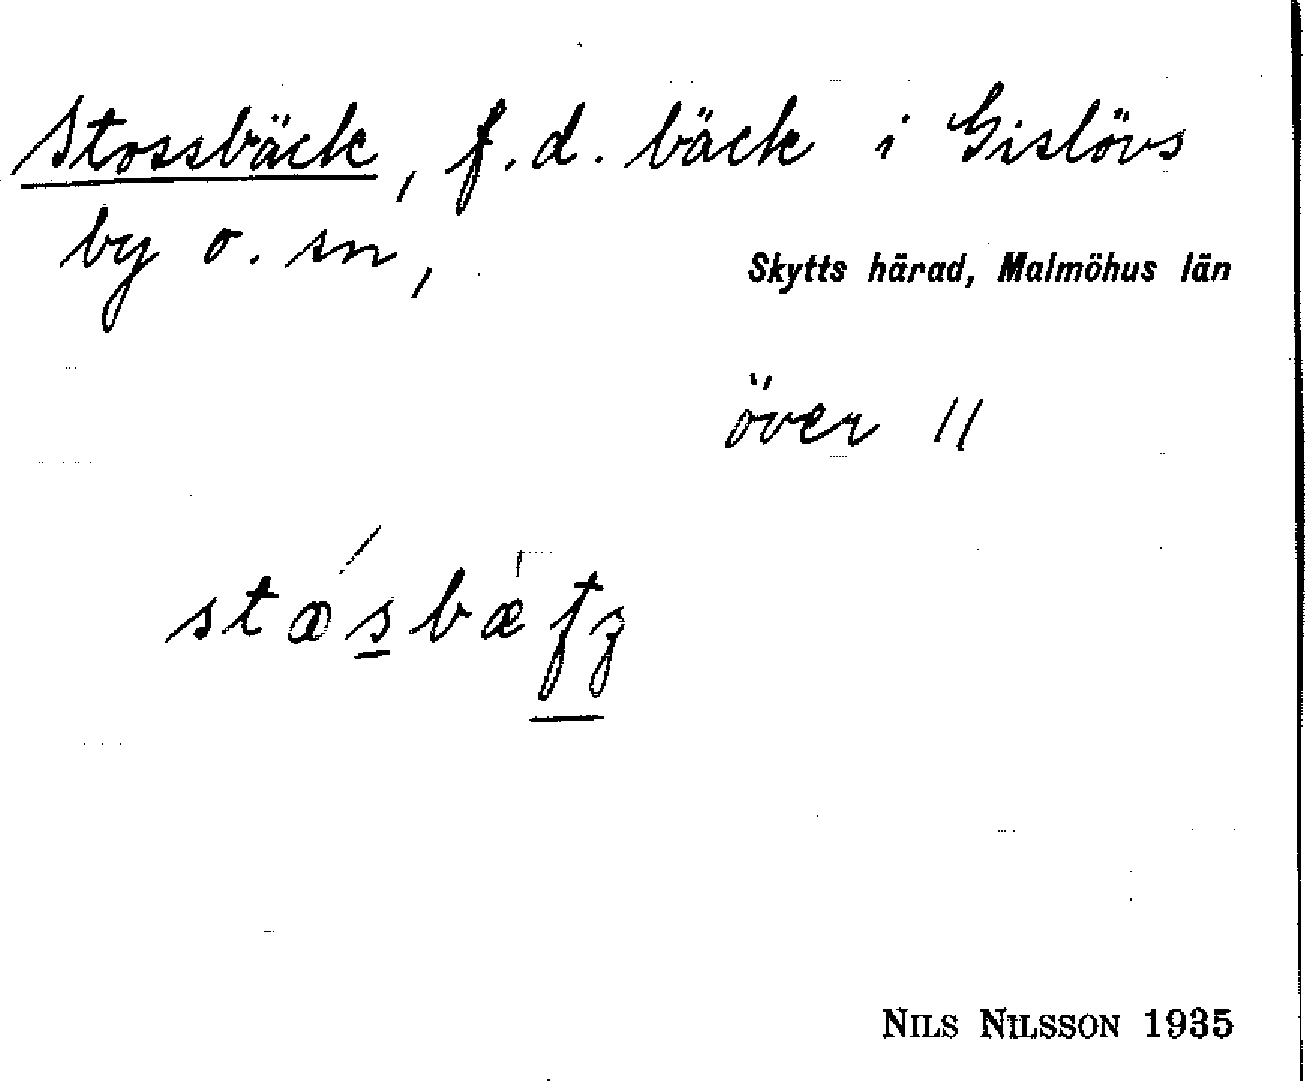 Stossbäck, f.d. bäck i Gislövs
by o. sn,
Skytts härad, Malmöhus län
över //
NILS NILSSON 1935